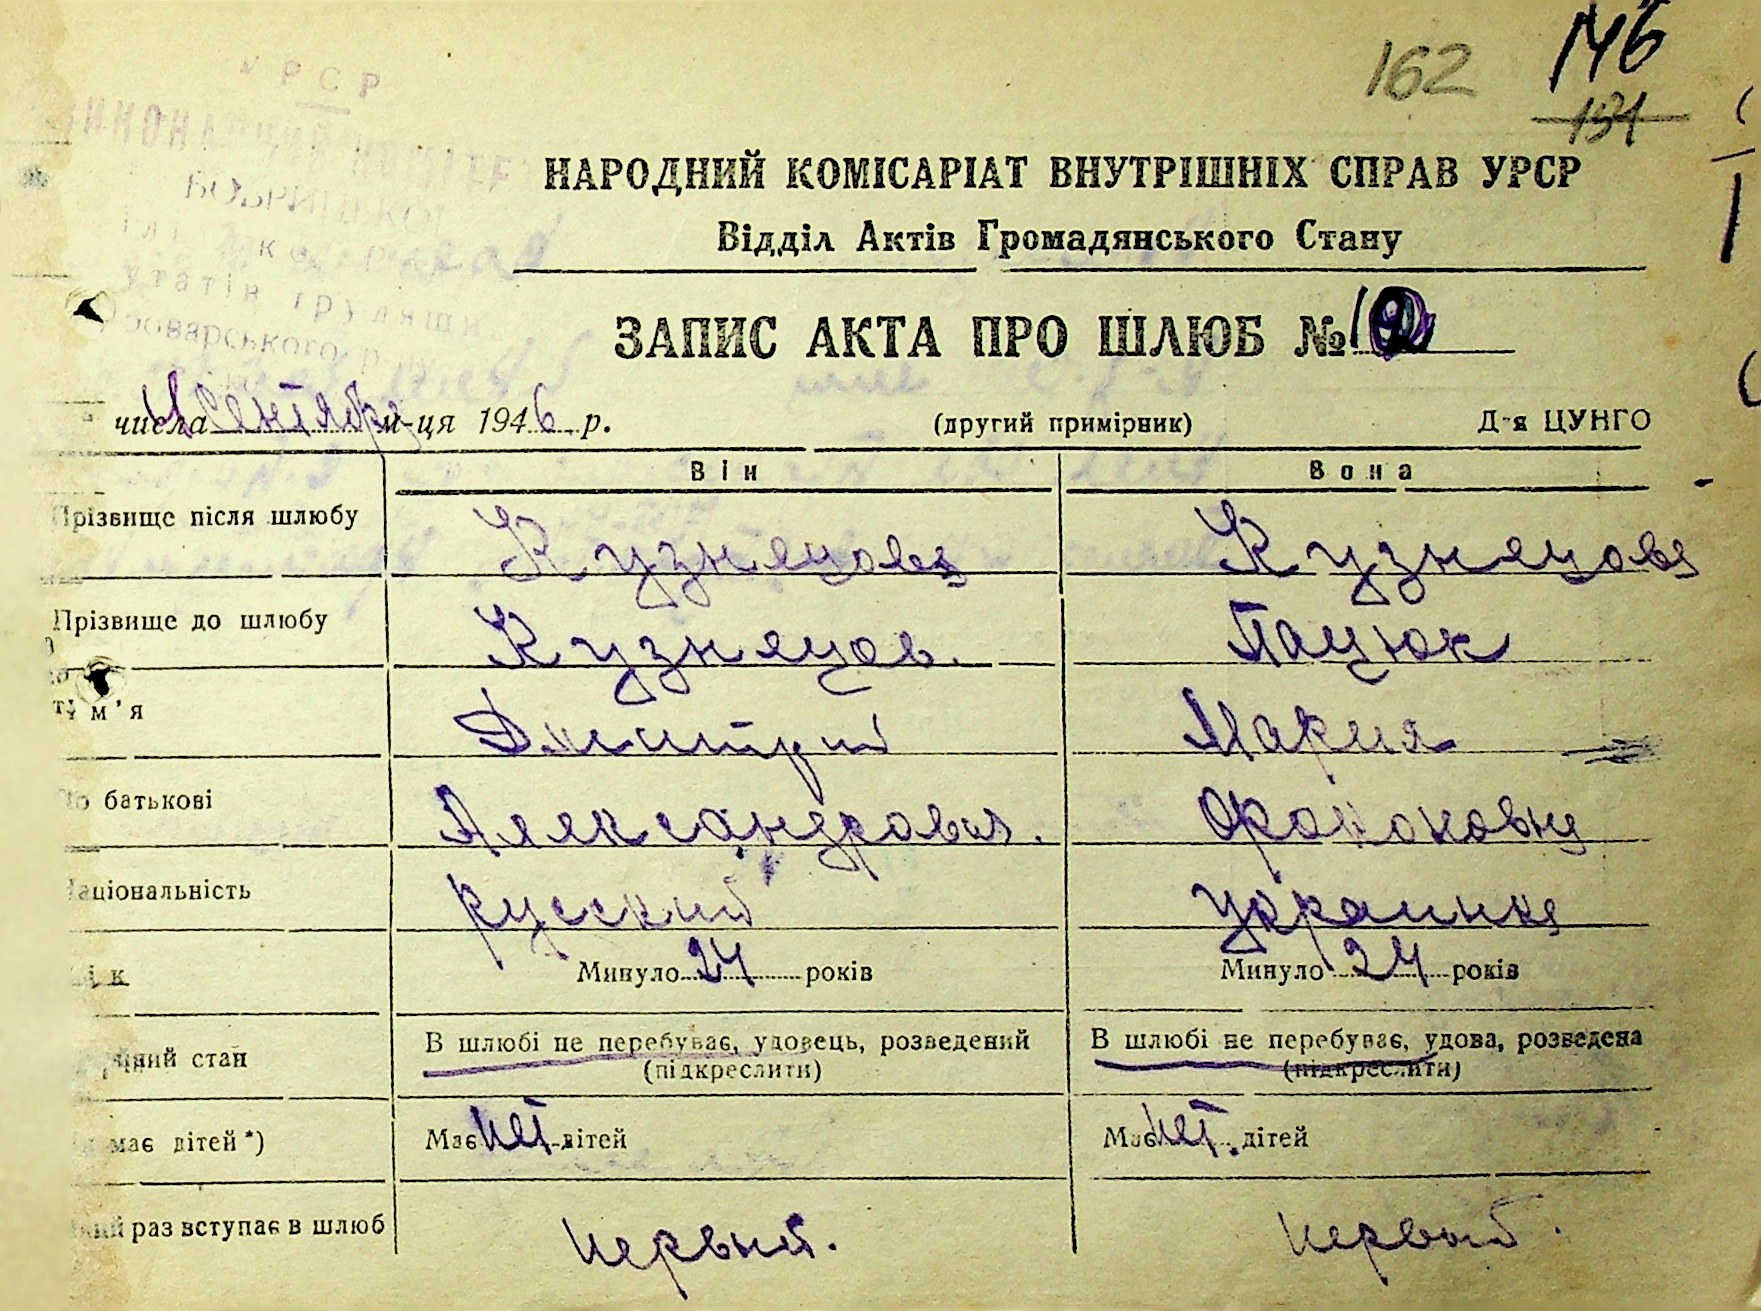 162
146
131
УРСР
НАРОДНИЙ КОМІСАРІАТ ВНУТРІШНІХ СПРАВ УРСР
Відділ Актів Громадянського Стану
ЗАПИС АКТА ПРО ШЛЮБ №
числа сентября м-ця 1946 р.
(другий примірник)
Д-я ЦУНГО
Він
Вона
Прізвище після шлюбу
Кузняцова
Кузняцова
Прізвище до шлюбу
Кузняцов.
Пацюк
Ім'я
Дмитрий
Мария
По батькові
Аляксандрович.
Національність
русский
украинка
Вік
Минуло 24 років
Минуло 24 років
стан
В шлюбі не перебуває, удовець, розведений
(підкреслити)
В шлюбі не перебуває, удова, розведена
(підкреслити)
має дітей*)
Має нет дітей
Має нет. дітей
раз вступає в шлюб
первый.
первый.